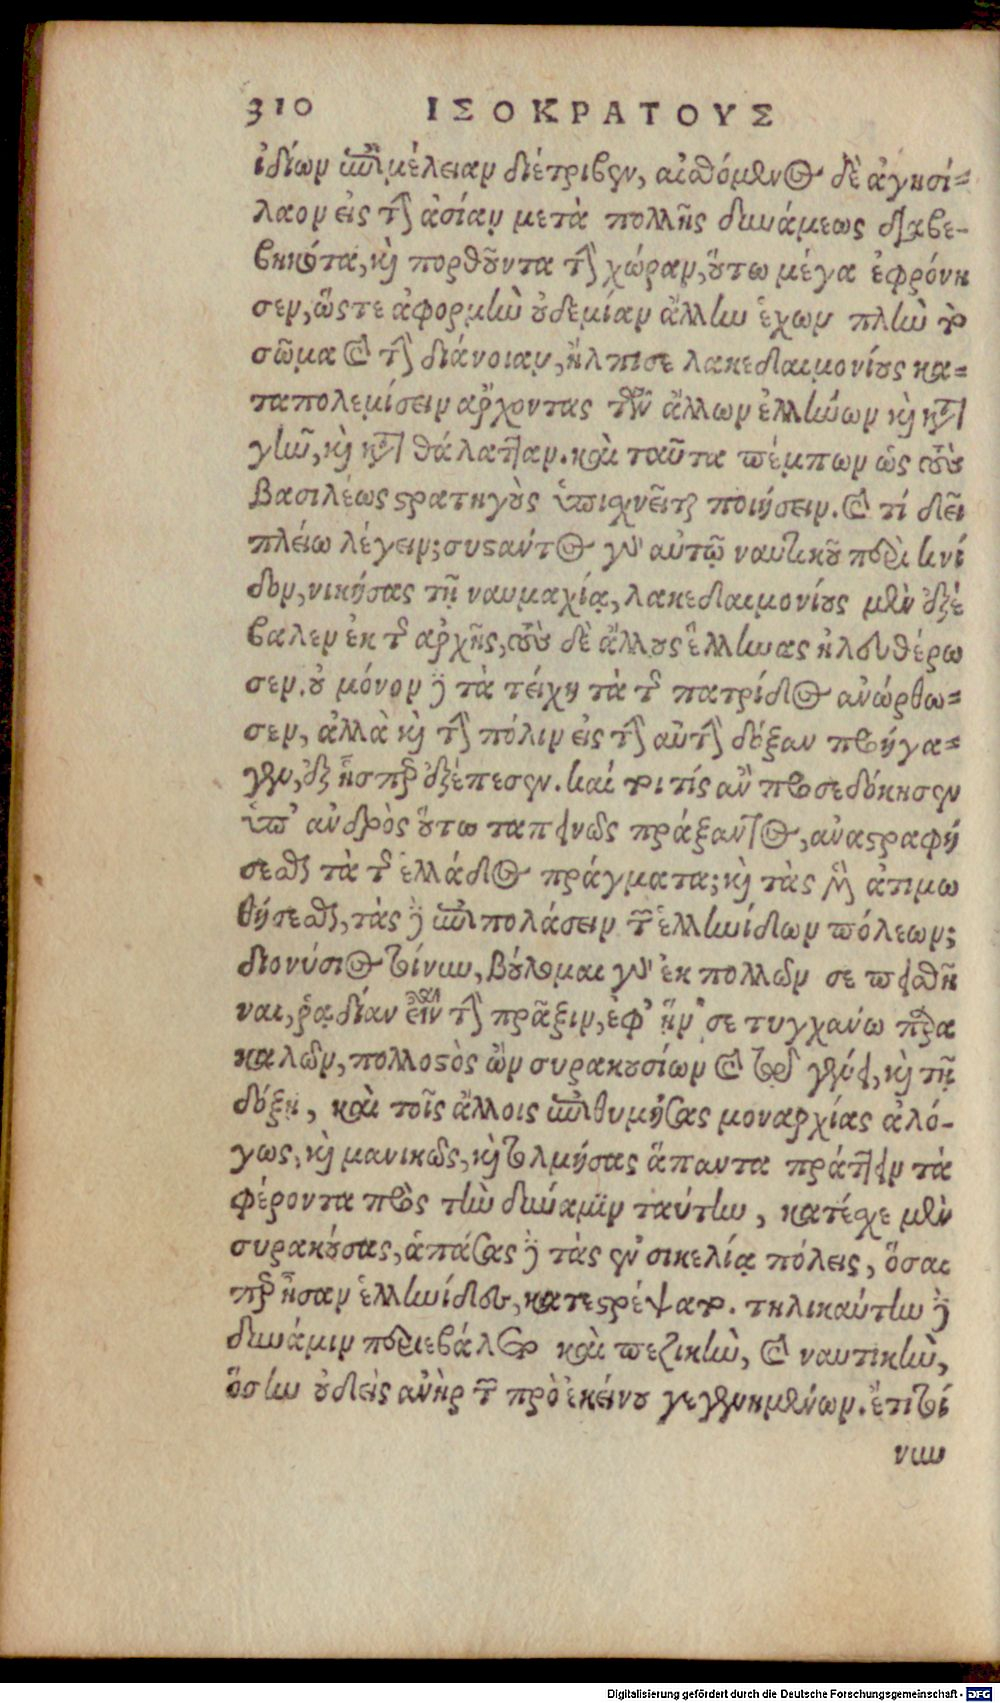 310 ΙΣΟΚΡΑΤΟΥΣ
ἰδίων ἐπιμέλειαν διέτριβεν, αἰσθόμενος δὲ ἀγησί=
λαον εἰς τὴν ἀσίαν μετὰ πολλῆς δυνάμεως διαβε-
βηκότα, καὶ πορθοῦντα τὴν χώραν, οὕτω μέγα ἐφρόνη
σεν, ὥστε ἀφορμὴν οὐδεμίαν ἄλλην ἔχων πλὴν τὸ
σῶμα καὶ τὴν διάνοιαν, ἤλπισε λακεδαιμονίους κα=
ταπολεμίσειν ἄρχοντας τῶν ἄλλων ἑλλήνων καὶ κατὰ
γῆν, καὶ κατὰ θάλατταν. καὶ ταῦτα πέμπων ὡς τοὺς
βασιλέως στρατηγοὺς ὑπισχνεῖται ποιήσειν. καὶ τί δεῖ
πλείω λέγειν; συστάντος γὰρ αὐτῷ ναυτικοῦ περὶ κνί
δον, νικήσας τῇ ναυμαχίᾳ, λακεδαιμονίους μὲν ἐξέ
βαλεν ἐκ τῆς ἀρχῆς, τοὺς δὲ ἄλλους ἕλληνας ἠλευθέρω
σεν. οὐ μόνον δὲ τὰ τείχη τὰ τῆς πατρίδος ἀνώρθω=
σεν, ἀλλὰ καὶ τὴν πόλιν εἰς τὴν αὐτὴν δόξαν προήγα=
γεν, ἐξ ἧσπερ ἐξέπεσεν. καίτοι τίς ἂν προσεδόκησεν
ὑπ' ἀνδρὸς οὕτω ταπεινῶς πράξαντος, ἀναστραφή
σεσθαι τὰ τῆς ἑλλάδος πράγματα; καὶ τὰς μὲν ἀτιμω
θήσεσθαι, τὰς δὲ ἐπιπολάσειν τῶν ἑλληνίδων πόλεων;
διονύσιος τοίνυν, βούλομαι γὰρ ἐκ πολλῶν σε πεισθῆ
ναι, ῥᾳδίαν εἶναι τὴν πρᾶξιν, ἐφ' ἥν σε τυγχάνω παρα
καλῶν, πολλοστὸς ὢν συρακουσίων καὶ τῷ γένει, καὶ τῇ
δόξῃ, καὶ τοῖς ἄλλοις ἐπιθυμήσας μοναρχίας ἀλό-
γως, καὶ μανικῶς, καὶ τολμήσας ἅπαντα πράττειν τὰ
φέροντα πρὸς τὴν δύναμιν ταύτην, κατέσχε μὲν
συρακούσας, ἁπάσας δὲ τὰς ἐν σικελίᾳ πόλεις, ὅσαι
περ ἦσαν ἑλληνίδες, κατεστρέψατο. τηλικαύτην δὲ
δύναμιν περιεβάλετο καὶ πεζικὴν, καὶ ναυτικὴν,
ὅσην οὐδεὶς ἀνὴρ τῶν πρὸ ἐκείνου γεγενημένων. ἔτι τοί
νυν
Digitalisierung gefördert durch die Deutsche Forschungsgemeinschaft - DFG